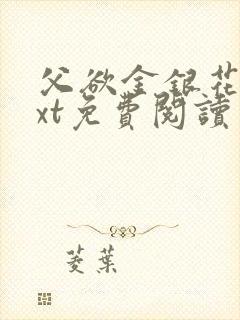 父欲金銀花
xt免費閱讀
菱葉